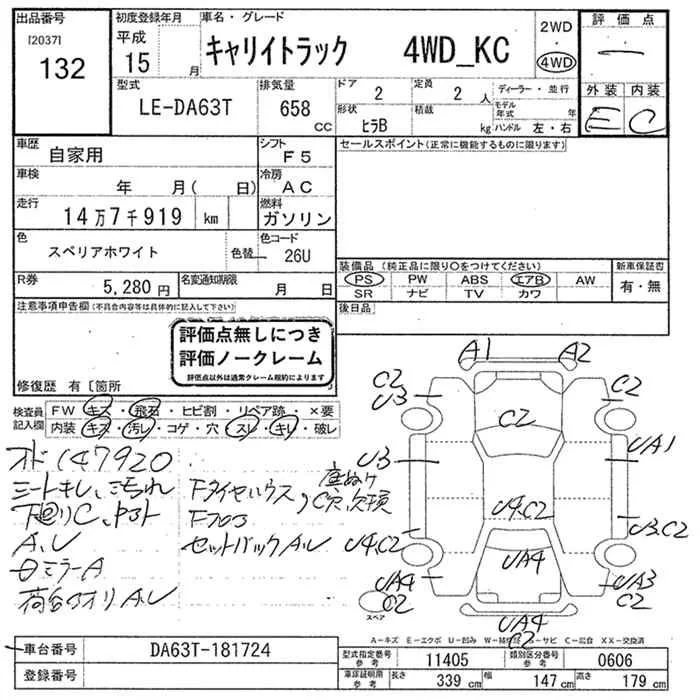 出品番号 初度登録年月 車名・グレード 2WD 評価点
[2037] 132 平成 15 月 キャリイトラック 4WD_KC 4WD 一
型式 LE-DA63T 排気量 658 CC ドア 2 定員 2 人 ディーラー・並行 外装 内装
形状 ヒラB 積載 kg モデル年式 年 ハンドル 左・右 E C
車歴 自家用 シフト F5 セールスポイント(正常に機能するものに限ります)
車検 年 月( 日) 冷房 AC
走行 14万7千919 km 燃料 ガソリン
色 スペリアホワイト 色替 色コード 26U
装備品(純正品に限り○をつけてください) 新車保証書
R券 5,280円 名変通知期限 月 日 PS PW ABS エアB AW 有・無
SR ナビ TV カワ
注意事項申告欄(不具合内容等は具体的に記入して下さい) 後日品
評価点無しにつき
評価ノークレーム
評価点以外は通常クレーム規約によります
修復歴 有〔箇所
検査員記入欄 FW キズ・飛石・ヒビ割・リペア跡・×要
内装 キズ・汚レ・コゲ・穴・スレ・キレ・破レ
オド147920
シートキレ、汚れ
下廻りC、
A、U
ミラーA
荷台アオリA、U
C穴欠損
Fフロア
セットバックA、U
A1 A2
C2 U3 C2 C2
U3 UA1
U4、C2
U4、C2 U3、C2
UA4
UA4 C2 UA3 C2
UA4 C2
スペア
A-キズ E-エクボ U-凹み W-補修跡 S-サビ C-腐食 XX-交換済
車台番号 DA63T-181724
登録番号
型式指定番号 参考 11405 類別区分番号 参考 0606
車庫証明用 参考 長さ 339 cm 幅 147 cm 高さ 179 cm